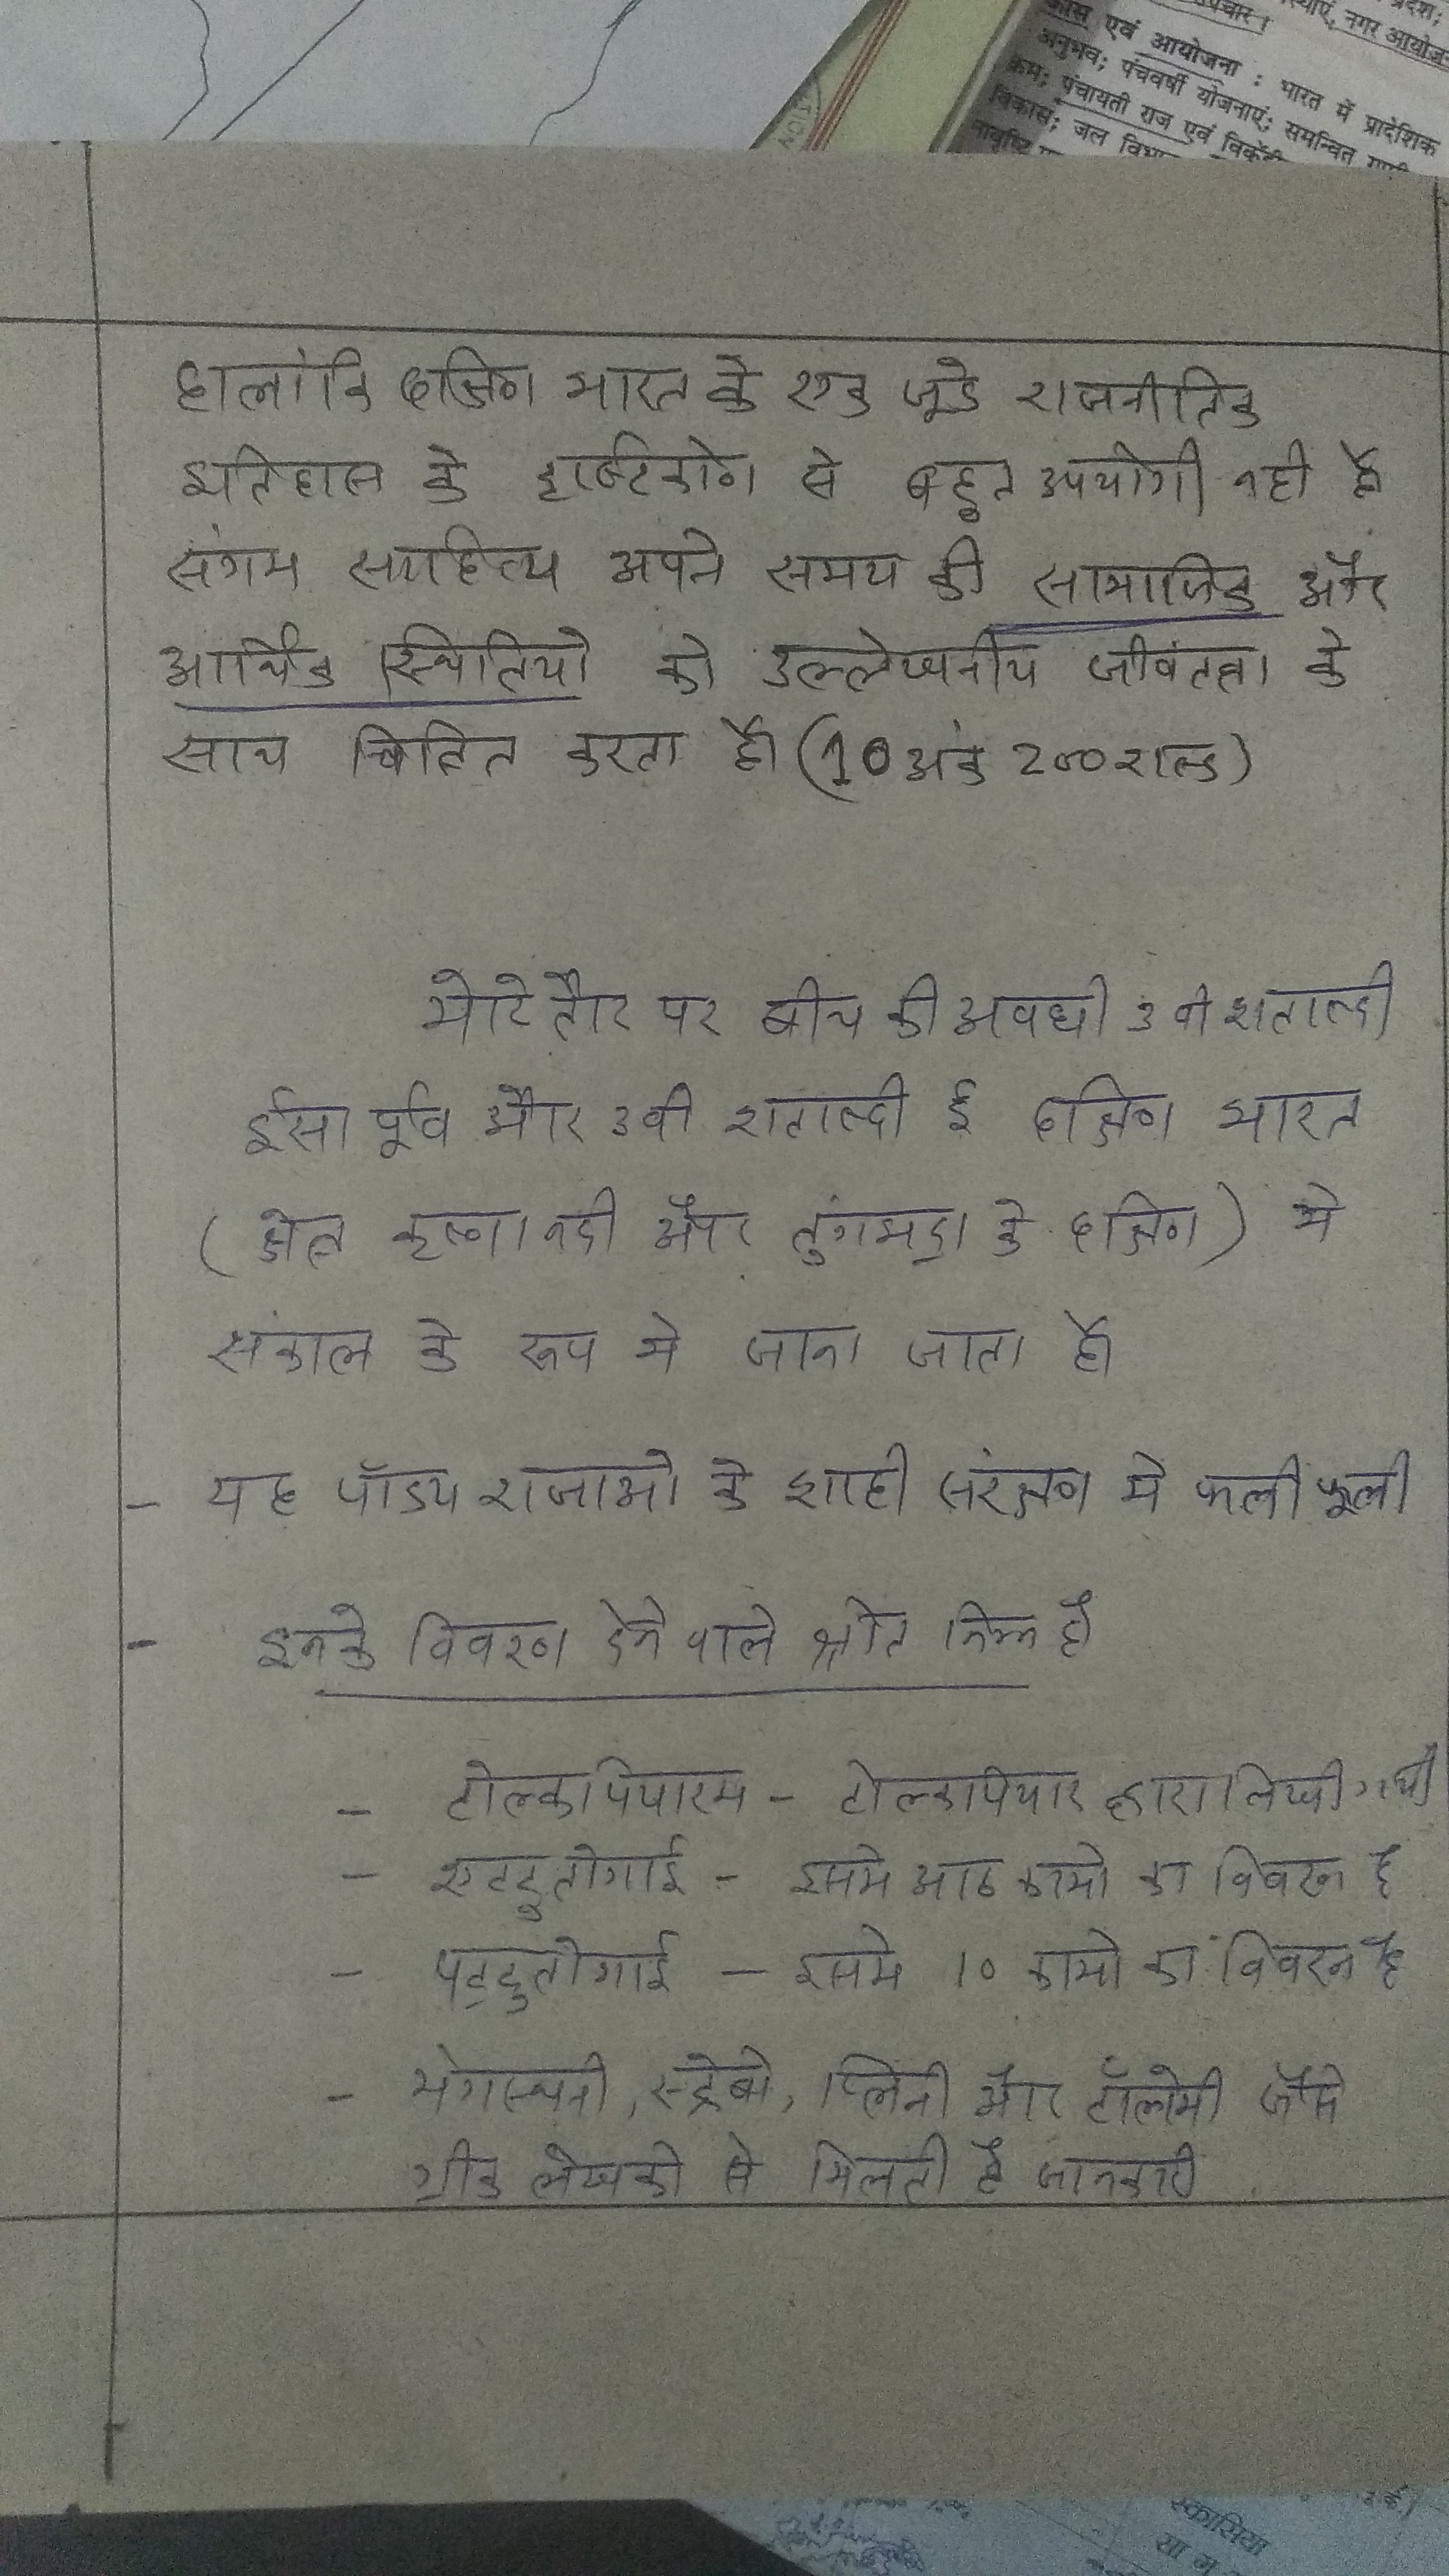 उपचार ।
नगर आयोज
एवं आयोजना : भारत में प्रादेशिक
अनुभव; पंचवर्षी योजनाएं; समन्वित
पंचायती राज एवं
विकास; जल
हालांकि दक्षिण भारत के एक जूडे राजनीतिक
इतिहास के दृष्टिकोण से बहुत उपयोगी नही है
संगम साहित्य अपने समय की सामाजिक और
आर्थिक स्थितियो को उल्लेखनीय जीवंतता के
साथ चित्रित करता है। (10 अंक 200 शब्द)
मोटे तौर पर बीच की अवधी 3 वी शताब्दी
ईसा पूर्व और 3 वी शताब्दी ई दक्षिण भारत
(क्षेत्र कृष्णा नदी और तुंगभद्रा के दक्षिण) मे
संकाल के रूप मे जाना जाता है।
- यह पॉडय राजाओ के शाही संरक्षण मे फली फूली
- इनके विवरण देने वाले श्रोत निम्न है
- टोल्कापियारम - टोल्कापियार द्वारा लिखी गयी
- एटटूतोगाई - इसमे आठ कामो का विवरन है
- पट्टुतोगाई - इसमे 10 कामो का विवरन है
- मेगास्थनी, स्ट्रेबो, प्लिनी और टॉलेमी जैसे
ग्रीक लेखको से मिलती है जानकारी
स्कासिया